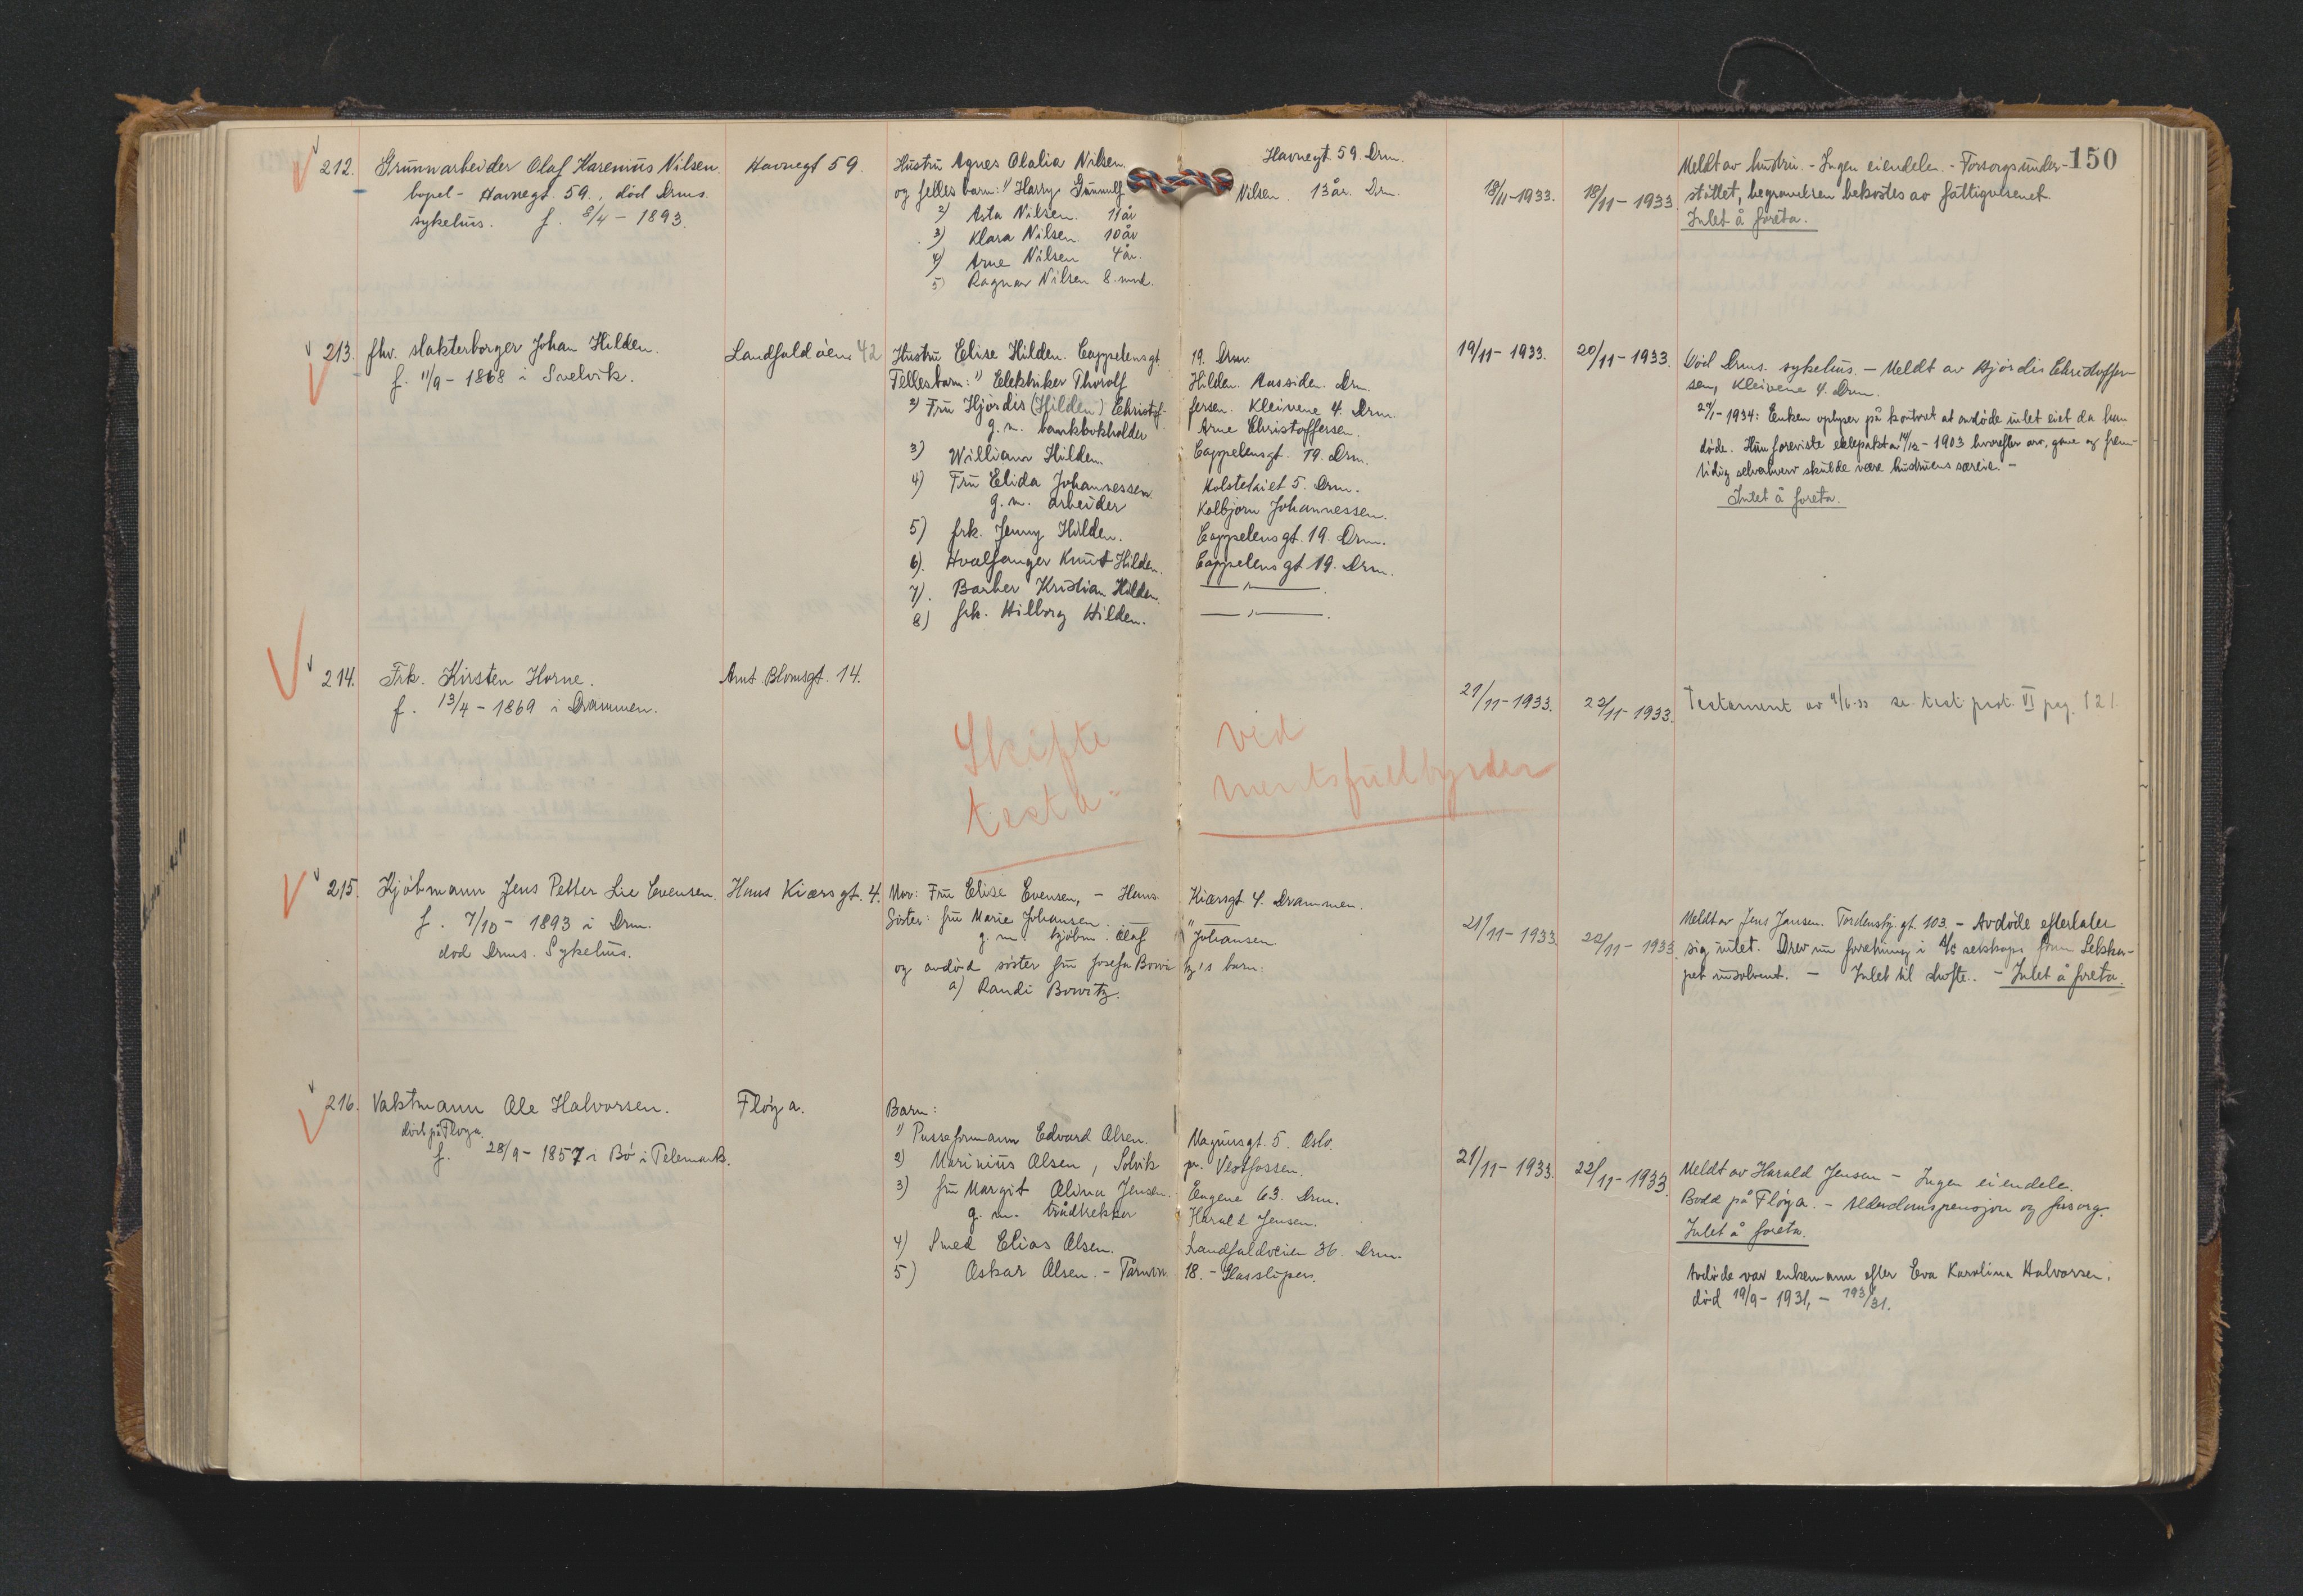 150
212. Grunnarbeider Olaf Karenius Nilsen.
bopel - Havnegt. 59., död Drms.
sykehus. f. 8/4 - 1893.
Havnegt 59.
Hustru Agnes Olalia Nilsen. Havnegt 59. Drm.
og felles barn: 1) Harry Gunnulf Nilsen. 13 år. Drm.
2) Asta Nilsen. 11 år
3) Klara Nilsen. 10 år
4) Arne Nilsen 4 år.
5) Ragnar Nilsen 8 mnd.
18/11-1933.
18/11-1933.
Meldt av hustru. - Ingen eiendeler. - Forsorgsunder-
støttet, begravelsen bekostes av fattigvesenet.
Intet å foreta.
213. fhv. slakterborger Johan Hilden.
f. 11/9 - 1868 i Svelvik.
Landfaldöien 42
Hustru Elise Hilden. Cappelensgt. 19. Drm.
Fellesbarn: 1) Elektriker Thorolf Hilden. Aassiden. Drm.
2) Fru Hjördis (Hilden) Christof- fersen. Kleivene 4. Drm.
g. m. bankbokholder Arne Christoffersen.
3) William Hilden. Cappelensgt. 19. Drm.
4) Fru Elida Johannessen. Holstekilet 5. Drm.
g. m. arbeider Kolbjörn Johannessen.
5) frk. Jenny Hilden. Cappelens gt. 19. Drm.
6). Hvalfanger Knut Hilden. Cappelens gt 19. Drm.
7). Barber Kristian Hilden. — " —.
8) frk. Hilborg Hilden. — " —.
19/11-1933.
20/11-1933.
Död Drms. sykehus. - Meldt av Hjördis Christoffer-
sen, Kleivene 4. Drm.
24/1-1934: Enken oplyser på kontoret at avdöde intet eiet da han
döde. Hun foreviste ektepakt av 14/12-1903 hvorefter arv, gave og frem-
tidig selverhverv skulde være hustruens særeie. -
Intet å foreta.
214. Frk. Kirsten Horne.
f. 13/4 - 1869 i Drammen.
Arnt Blomsgt. 14.
Skifte ved
testa- mentsfuldbyrder
21/11-1933.
22/11-1933.
Testament av 9/6-33 se test. prot. VI pag. 121.
215. Kjöbmann Jens Petter Lie Evensen.
f. 7/10 - 1893 i Drm.
död Drms. Sykehus.
Hans Kiærs gt. 4.
Mor: Fru Elise Evensen, - Hans Kiærsgt 4. Drammen.
Söster: fru Marie Johansen.
g. m. kjöbm. Olaf Johansen
og avdöd söster fru Josefa Bowi- tz's barn:
a) Randi Bowitz.
21/11-1933.
22/11-1933.
Meldt av Jens Jansen. Tordenskj. gt. 103. - Avdöde efterlater
sig intet. Drev nu forretning i A/S selskaps form. Selska-
pet insolvent. - Intet til skifte. - Intet å foreta.
216. Vaktmann Ole Halvorsen.
död på Flöya.
f. 28/9 - 1857 i Bö i Telemark.
Flöya.
Barn:
1) Pusseformann Edvard Olsen. Magnusgt. 5. Oslo.
2) Marinius Olsen, Solvik pr. Vestfossen.
3) fru Margit Olina Jensen. Engene 63. Drm.
g. m. trådtrekker Harald Jensen.
4) Smed Elias Olsen. Landfaldveien 36. Drm.
5) Oskar Olsen. - Tårnvn. 18. - Glassliper.
21/11-1933.
22/11-1933.
Meldt av Harald Jensen - Ingen eiendeler.
Bodd på Flöya. - Alderdomspensjon og forsorg.
Intet å foreta.
Avdöde var enkemann efter Eva Karolina Halvorsen.
död 19/9 - 1931, - 193/31.